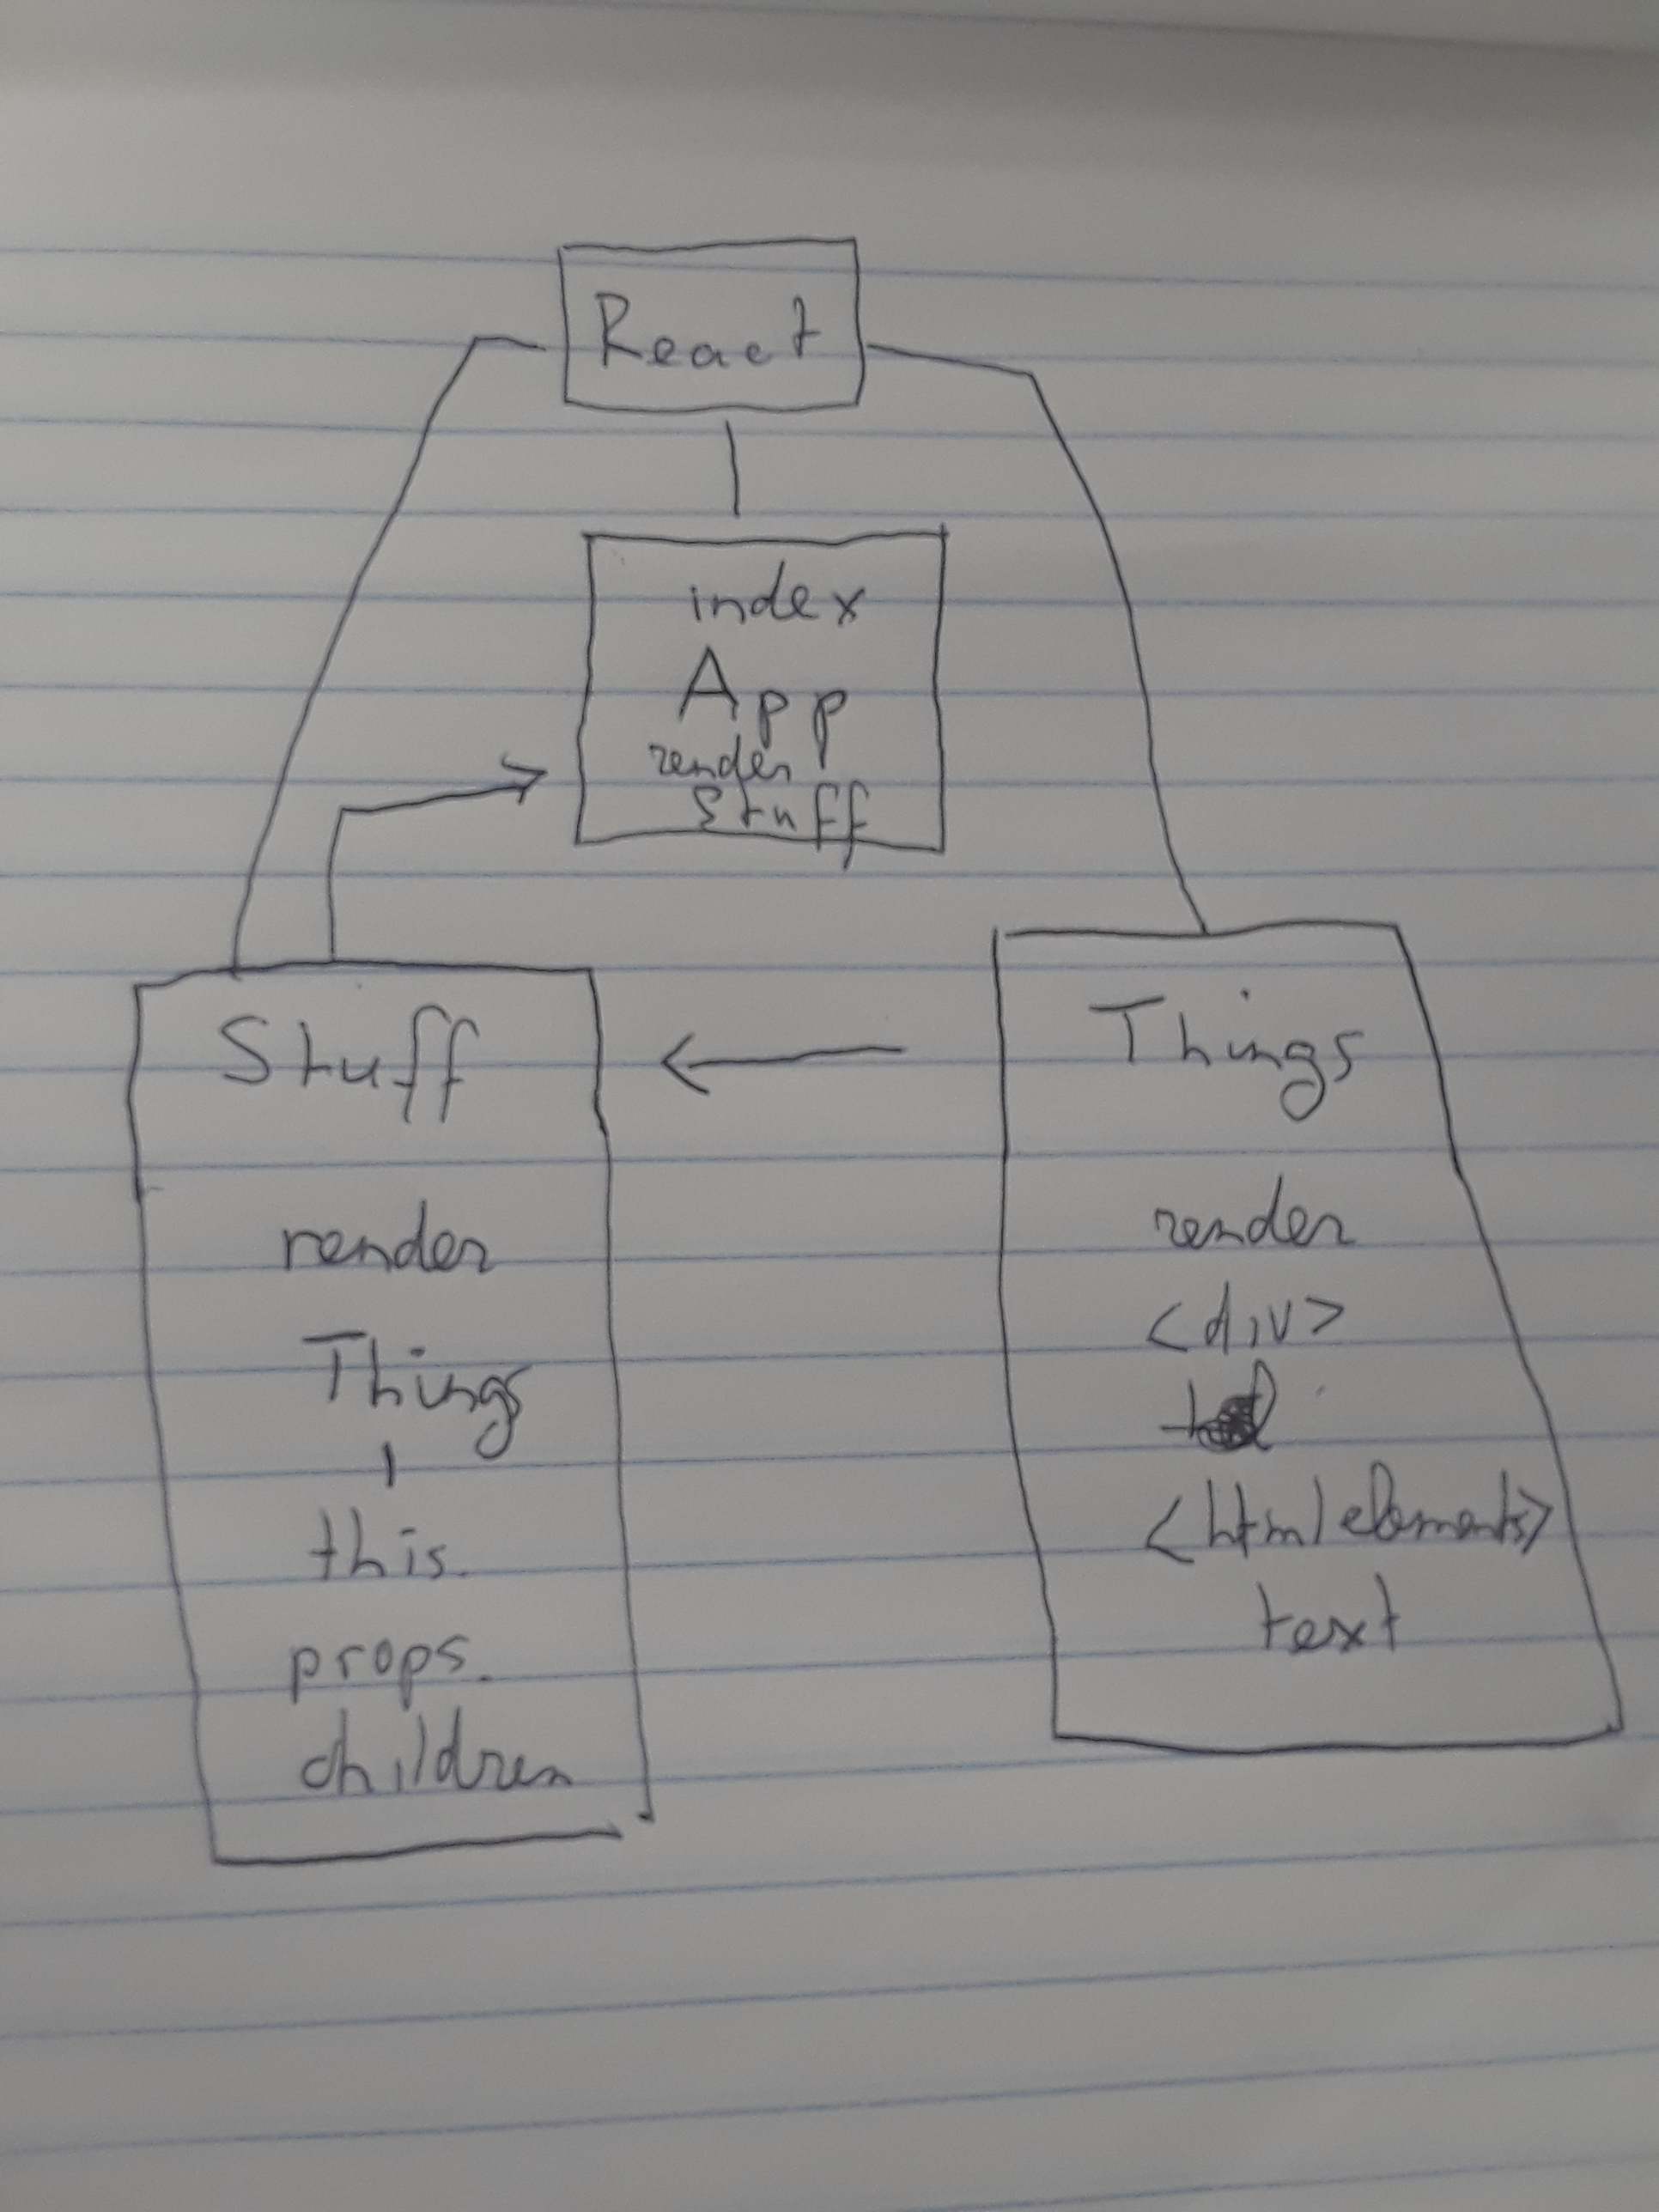 React
index
App
render
Stuff
Stuff
render
Things
this.
props.
children
Things
render
<div>
<html elements>
text